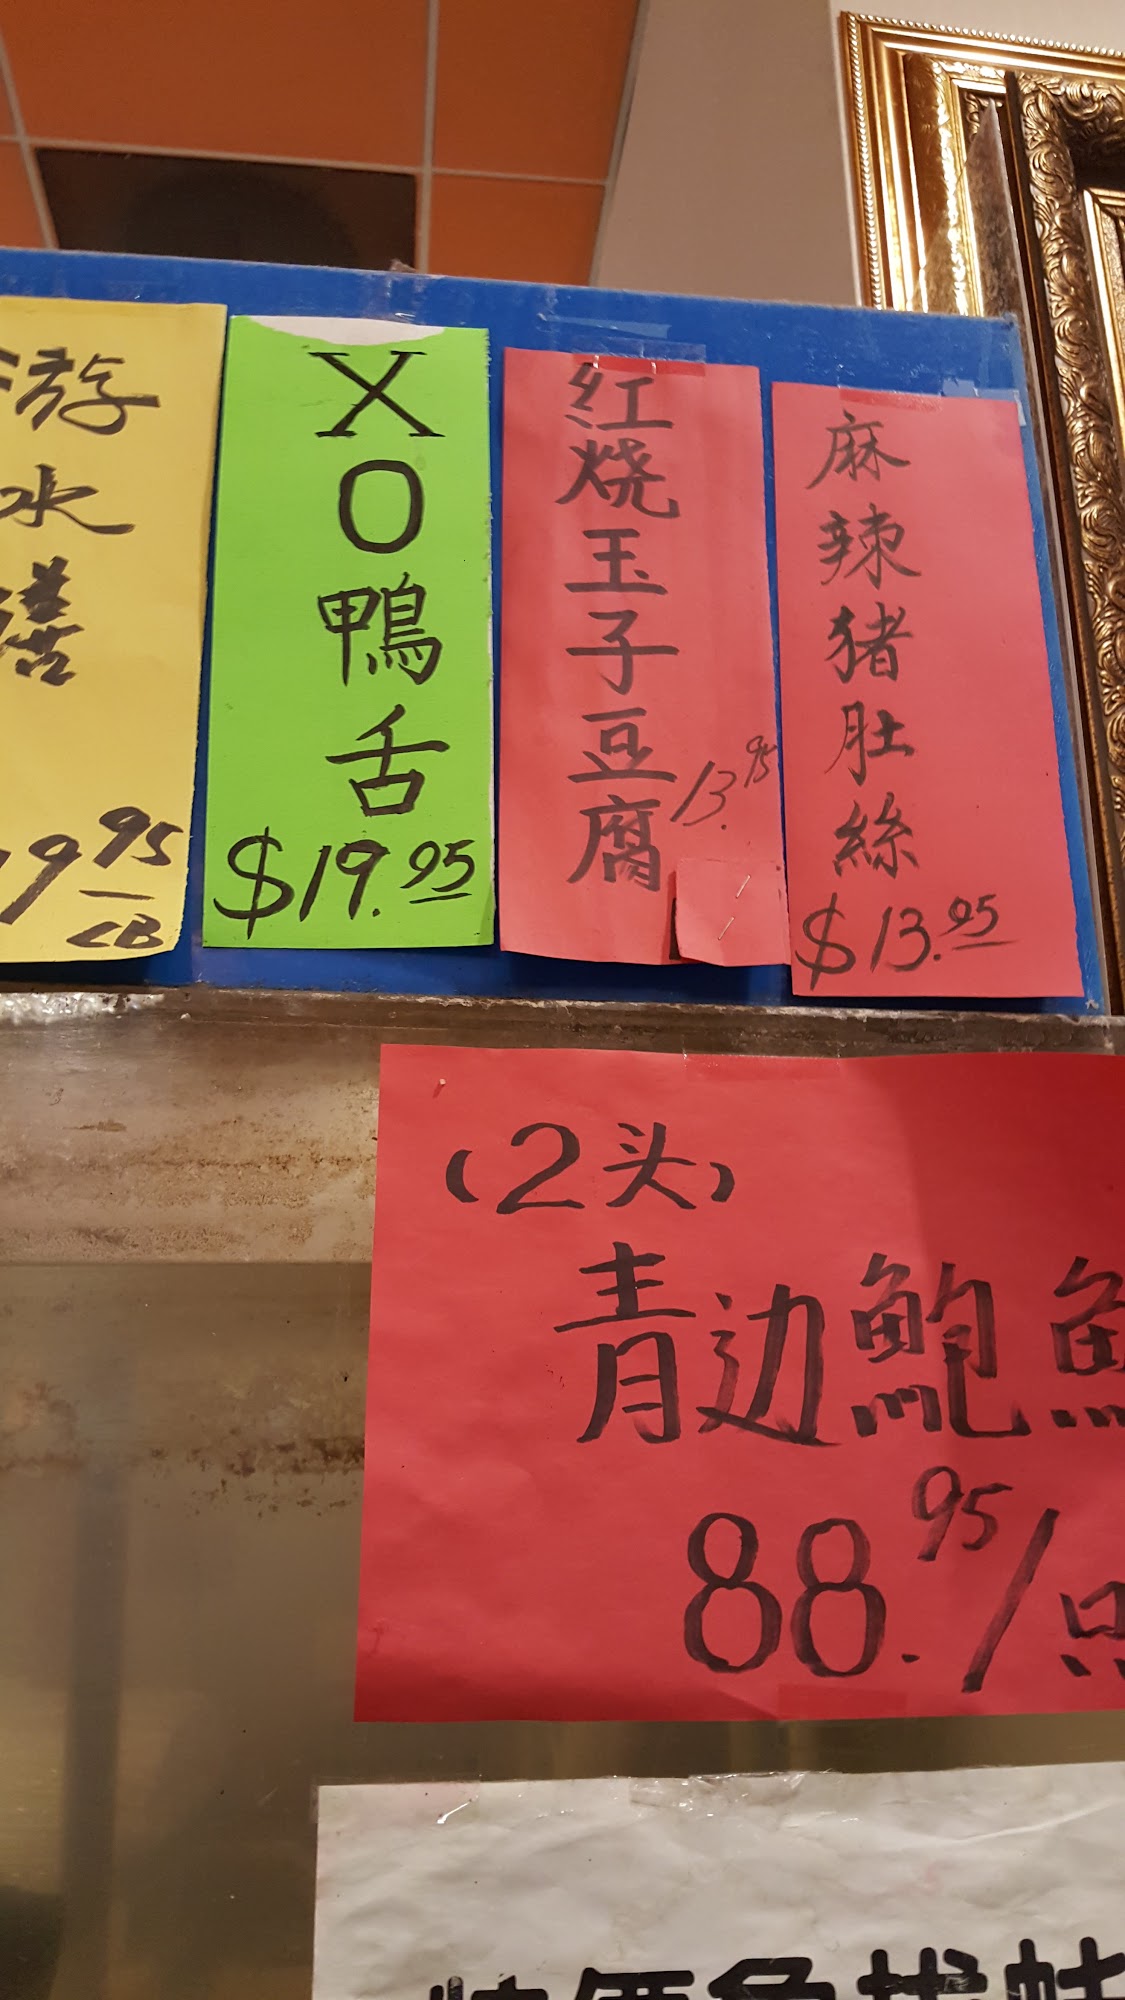 游水
9.95
CB
XO鴨舌
$19.95
红烧玉子豆腐
13.95
麻辣猪肚絲
$13.95
(2头)
青边鮑
88.95/